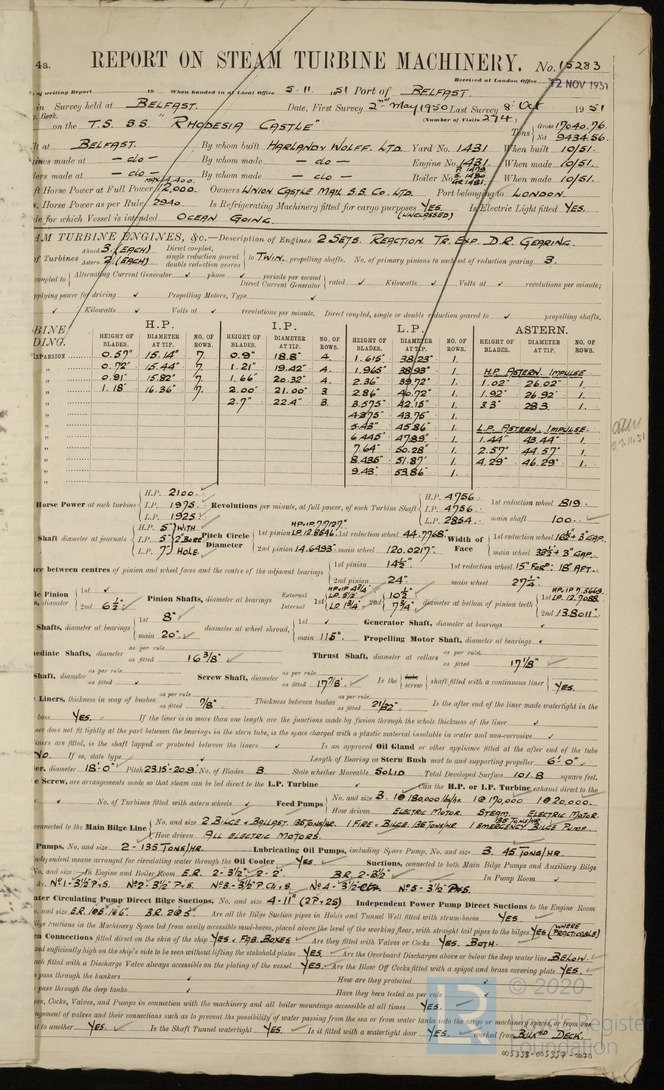 4a. REPORT ON STEAM TURBINE MACHINERY. No. 15283
Received at London Office 12 NOV 1951
of writing Report 19 When handed in at Local Office 5. 11. 1951 Port of BELFAST.
in Survey held at BELFAST. Date, First Survey 2nd May 1950 Last Survey 8 Oct 1951
Book. (Number of Visits 274)
on the T.S. S.S. "RHODESIA CASTLE" Tons Gross 17040.76. Net 9434.56.
lt at BELFAST. By whom built HARLAND & WOLFF. LTD. Yard No. 1431 When built 10/51.
ines made at — do — By whom made — do — Engine No. 1431. When made 10/51.
lers made at — do — By whom made — do — Boiler No. When made 10/51.
ft Horse Power at Full Power 12,000. Owners UNION CASTLE MAIL S.S. CO. LTD. Port belonging to LONDON.
Horse Power as per Rule 2940 Is Refrigerating Machinery fitted for cargo purposes YES. (UNCLASSED) Is Electric Light fitted YES.
de for which Vessel is intended OCEAN GOING.
AM TURBINE ENGINES, &c.—Description of Engines 2 SETS. REACTION. TR. EXP. D.R. GEARING.
of Turbines Ahead 3 (EACH) Astern 2 (EACH) Direct coupled, single reduction geared double reduction geared to TWIN. propelling shafts. No. of primary pinions to each set of reduction gearing 3.
coupled to Alternating Current Generator phase periods per second Direct Current Generator rated Kilowatts Volts at revolutions per minute;
pplying power for driving Propelling Motors, Type
Kilowatts Volts at revolutions per minute. Direct coupled, single or double reduction geared to propelling shafts.
BINE DING. H.P. I.P. L.P. ASTERN.
HEIGHT OF BLADES. DIAMETER AT TIP. NO. OF ROWS. HEIGHT OF BLADES. DIAMETER AT TIP. NO. OF ROWS. HEIGHT OF BLADES. DIAMETER AT TIP. NO. OF ROWS. HEIGHT OF BLADES. DIAMETER AT TIP. NO. OF ROWS.
EXPANSION 0.57" 15.14" 7. 0.9" 18.8" 4. 1.615" 38.23" 1.
" 0.72" 15.44" 7. 1.21" 19.42" 4. 1.965" 38.93" 1. H.P. ASTERN. IMPULSE
" 0.91" 15.82" 7. 1.66" 20.32" 4. 2.36" 39.72" 1. 1.02" 26.02" 1.
" 1.18" 16.36" 7. 2.00" 21.00" 3 2.86" 40.72" 1. 1.92" 26.92" 1.
" 2.7" 22.4" 3. 3.575" 42.15" 1. 3.3" 28.3 1.
" 4.375" 43.75" 1.
" 5.43" 45.86" 1. L.P. ASTERN. IMPULSE.
" 6.445" 47.89" 1. 1.44" 43.44" 1.
" 7.64" 50.28" 1. 2.57" 44.57" 1.
" 8.435" 51.87" 1. 4.29" 46.29" 1.
" 9.43" 53.86" 1.
Horse Power at each turbine H.P. 2100. I.P. 1975. L.P. 1925. Revolutions per minute, at full power, of each Turbine Shaft H.P. 4756. I.P. 4756. L.P. 2854. 1st reduction wheel 819. main shaft 100.
Shaft diameter at journals H.P. 5" I.P. 5" L.P. 7" WITH 2" BORE HOLE Pitch Circle Diameter 1st pinion L.P. 12.8646 1st reduction wheel 44.7768" 2nd pinion 14.6493" main wheel 120.0217" Width of Face 1st reduction wheel main wheel
ce between centres of pinion and wheel faces and the centre of the adjacent bearings 1st pinion 14½" 2nd pinion 24" 1st reduction wheel 15" FOR'D: 18" AFT. main wheel 27¼"
le Pinion s, diameter 1st 2nd 6½" Pinion Shafts, diameter at bearings External Internal 1st 2nd 10½" 7¾" diameter at bottom of pinion teeth 1st H.P. I.P. 7.5669. L.P. 12.7088. 2nd 13.8011"
Shafts, diameter at bearings 1st 8" main 20" diameter at wheel shroud, 1st main 115" Generator Shaft, diameter at bearings Propelling Motor Shaft, diameter at bearings
mediate Shafts, diameter as per rule as fitted 16 3/8" Thrust Shaft, diameter at collars as per rule as fitted 17 1/8"
Shaft, diameter as per rule as fitted Screw Shaft, diameter as per rule as fitted 17 7/8" Is the screw shaft fitted with a continuous liner YES.
Liners, thickness in way of bushes as per rule as fitted 7/8" Thickness between bushes as per rule as fitted 21/32" Is the after end of the liner made watertight in the
boss YES. If the liner is in more than one length are the junctions made by fusion through the whole thickness of the liner
er does not fit tightly at the part between the bearings in the stern tube, is the space charged with a plastic material insoluble in water and non-corrosive
iners are fitted, is the shaft lapped or protected between the liners Is an approved Oil Gland or other appliance fitted at the after end of the tube
NO. If so, state type Length of Bearing in Stern Bush next to and supporting propeller 6'. 0"
er, diameter 18'. 0" Pitch No. of Blades 3. State whether Moveable SOLID Total Developed Surface 101.8 square feet.
e Screw, are arrangements made so that steam can be led direct to the L.P. Turbine Can the H.P. or I.P. Turbine exhaust direct to the
No. of Turbines fitted with astern wheels Feed Pumps No. and size 3. 1 @ 180,000 lbs/hr. 1 @ 170,000 1 @ 20,000. How driven ELECTRIC MOTOR. STEAM. ELECTRIC MOTOR.
connected to the Main Bilge Line No. and size 2 BILGE & BALLAST. 135 TONS/HR. 1 FIRE & BILGE. 135 TONS/HR 1 EMERGENCY BILGE PUMP. How driven ALL ELECTRIC MOTORS.
Pumps, No. and size 2 - 135 TONS/HR. Lubricating Oil Pumps, including Spare Pump, No. and size 3. 45 TONS/HR.
independent means arranged for circulating water through the Oil Cooler YES Suctions, connected to both Main Bilge Pumps and Auxiliary Bilge
In Engine and Boiler Room E.R. 2-3½" 2-2". B.R. 2-3½" In Pump Room
&c. No.1-3½" P.S. No.2-3½" P.S. No.3-3½" P.C.S No.4-3½" No.5-3½" P&S.
ater Circulating Pump Direct Bilge Suctions, No. and size 4-11" Independent Power Pump Direct Suctions to the Engine Room
o. and size E.R. B.R. 2@5" Are all the Bilge Suction pipes in Holds and Tunnel Well fitted with strum-boxes YES.
ilge Suctions in the Machinery Space led from easily accessible mud-boxes, placed above the level of the working floor, with straight tail pipes to the bilges YES (WHERE PRACTICABLE)
ea Connections fitted direct on the skin of the ship YES & FAB. BOXES Are they fitted with Valves or Cocks YES. BOTH.
ed sufficiently high on the ship's side to be seen without lifting the stokehold plates YES Are the Overboard Discharges above or below the deep water line BELOW
ach fitted with a Discharge Valve always accessible on the plating of the vessel YES. Are the Blow Off Cocks fitted with a spigot and brass covering plate YES.
s pass through the bunkers How are they protected
pass through the deep tanks Have they been tested as per rule
es, Cocks, Valves, and Pumps in connection with the machinery and all boiler mountings accessible at all times YES.
ngement of valves and their connections such as to prevent the possibility of water passing from the sea or from water tanks into the cargo or machinery spaces, or from one
t to another YES. Is the Shaft Tunnel watertight YES. Is it fitted with a watertight door YES. worked from BULKHD DECK.
© 2020
Lloyd's Register
Foundation
005338-005357-0070